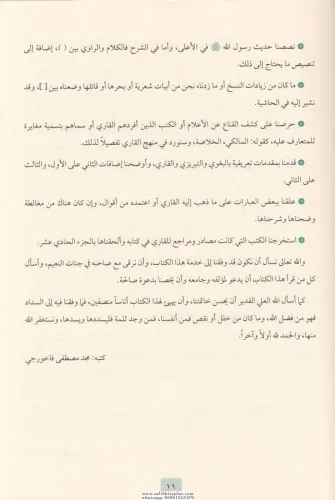 ❁ نصصنا حديث رسول الله ﷺ في الأعلى، وأما في الشرح فالكلام والراوي بين ( )، إضافة إلى
تنصيص ما يحتاج إلى ذلك.
❁ ما كان من زيادات النسخ أو ما زدناه نحن من أبيات شعرية أو بحرها أو قائلها وضعناه بين [ ]، وقد
نشير إليه في الحاشية.
❁ حرصنا على كشف القناع عن الأعلام أو الكتب الذين أفردهم القاري أو سماهم بتسمية مغايرة
للمتعارف عليه، كقوله: المالكي، الخلاصة، وسنورد في منهج القاري تفصيلاً لذلك.
❁ قدمنا بمقدمات تعريفية بالبغوي والتبريزي والقاري، وأوضحنا إضافات الثاني على الأول، والثالث
على الثاني.
❁ علقنا ببعض العبارات على ما ذهب إليه القاري أو اعتمده من أقوال، وإن كان هناك من مغالطة
وضحناها وشرحناها.
❁ استخرجنا الكتب التي كانت مصادر ومراجع للقاري في كتابه وألحقناها بالجزء الحادي عشر.
والله تعالى نسأل أن نكون قد وفقنا إلى خدمة هذا الكتاب، وأن نرقى مع صاحبه في جنات النعيم، وأسأل
كل من قرأ هذا الكتاب أن يدعو لمؤلفه وجامعه وأن يخصنا بدعوة صالحة.
كما أسأل الله العلي القدير أن يحسن خاتمتنا، وأن يهيئ لهذا الكتاب أناساً منصفين، فما وفقنا فيه إلى السداد
فهو من فضل الله، وما كان من خلل أو نقص فمن أنفسنا، فمن وجد ثلمة فليسددها ويسدها، ونستغفر الله
منها، والحمد لله أولاً وآخراً.
كتبه: محمد مصطفى فاخورجي
١١